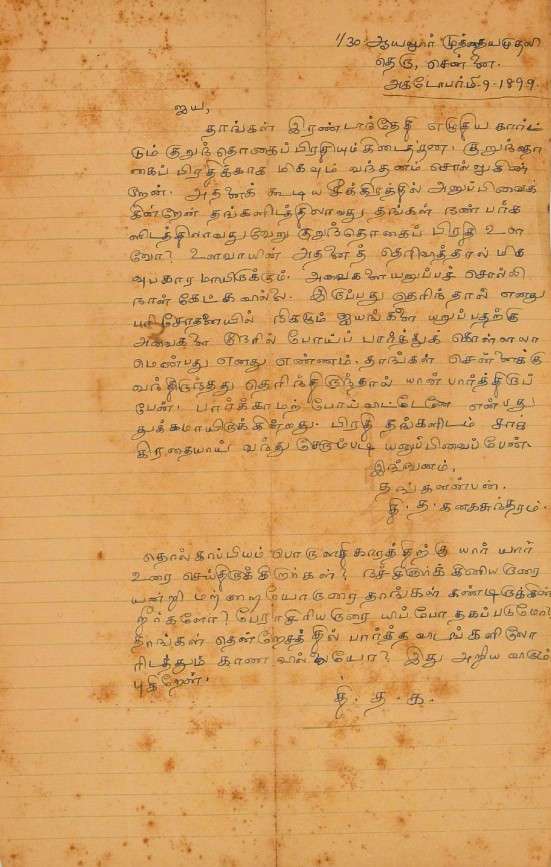 1/30 ஆயலூர் முத்தையமுதலி
தெரு, சென்னை.
அக்டோபர்மீ 9-1899.
ஐய,
தாங்கள் இரண்டாந்தேதி எழுதிய கார்ட்
டும் குறுந்தொகைப் பிரதியும் கிடைத்தன. குறுந்தொ
கைப் பிரதிக்காக மிகவும் வந்தனம் சொல்லுகின்
றேன். அதனைக் கூடிய சீக்கிரத்தில் அனுப்பிவைக்
கின்றேன் தங்களிடத்திலாவது தங்கள் நண்பர்க
ளிடத்திலாவது வேறு குறுந்தொகைப் பிரதி உள
வோ? உளவாயின் அதனைத் தெரிவித்தால் மிக
வுபகாரமாயிருக்கும். அவைகளையனுப்பச் சொல்லி
நான் கேட்கவில்லை. இருப்பது தெரிந்தால் எனது
பரிசோதனையில் நிகழும் ஐயங்களை யறுப்பதற்கு
அவைகளை நேரில் போய்ப் பார்த்துக் கொள்ளலா
மென்பது எனது எண்ணம். தாங்கள் சென்னைக்கு
வந்திருந்தது தெரிந்திருந்தால் யான் பார்த்திருப்
பேன். பார்க்காமற் போய்விட்டேனே என்பது
துக்கமாயிருக்கின்றது. பிரதி தங்களிடம் சாக்
கிரதையாய் வந்து சேரும்படி யனுப்பிவைப்பேன்.
இங்ஙனம்,
தங்களன்பன்.
தி. த. கனகசுந்தரம்.
தொல்காப்பியம் பொருளதிகாரத்திற்கு யார் யார்
உரை செய்திருக்கிறார்கள்? நச்சினார்க்கினியருரை
யன்றி மற்றையோருரை தாங்கள் கண்டிருக்கின்
றீர்களோ? பேராசிரியருரை யிப்போதகப்படுமோ?
தாங்கள் தென்றேசத்தில் பார்த்த விடங்களிலோ
ரிடத்தும் காணவில்லையோ? இது அறிய விரும்
புகிறேன்.
தி. த. க.